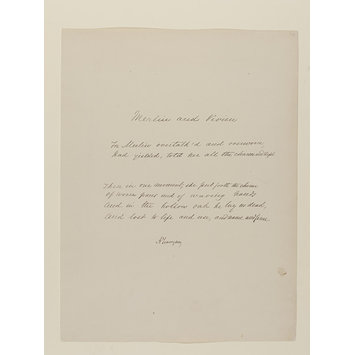 Merlin and Vivien
For Merlin overtalk'd and overworn
Had yielded, told her all the charm and slept
Then in one moment, she put forth the charm
of woven paces and of waving hands
And in the hollow oak he lay as dead,
And lost to life and use, and name and fame.
A Tennyson